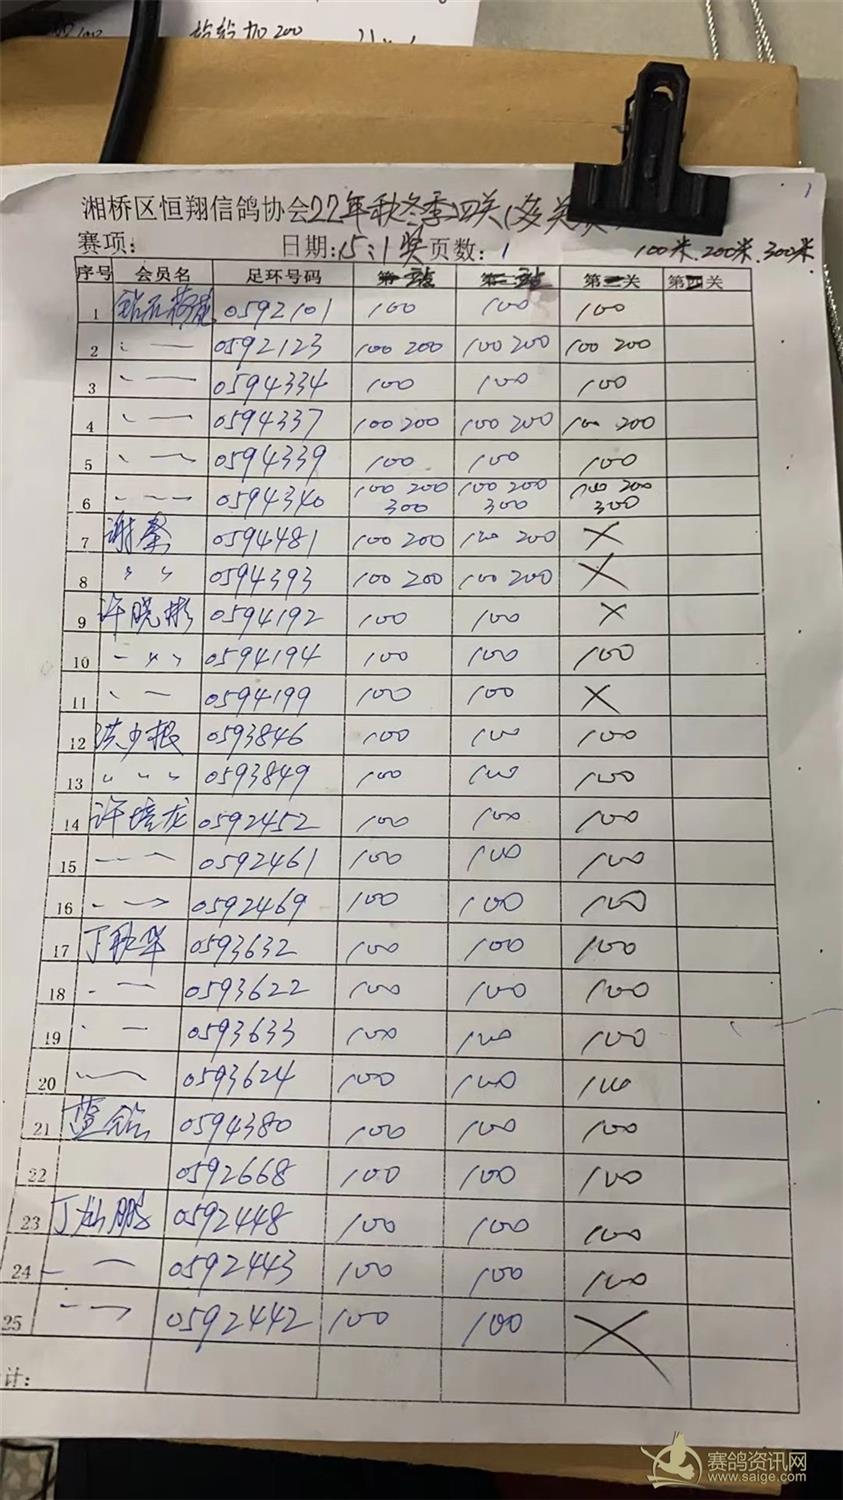 加200
湘桥区恒翔信鸽协会22年秋冬季四关(多关
赛项: 日期:15:1奖页数:1 100米.200米.300米
序号 会员名 足环号码 第一站 第二站 第三关 第四关
1 0592101 100 100 100
2 〃 — 0592123 100 200 100 200 100 200
3 〃 — 0594334 100 100 100
4 〃 — 0594337 100 200 100 200 100 200
5 〃 — 0594339 100 100 100
6 〃 — 0594340 100 200 300 100 200 300 100 200 300
7 谢 0594481 100 200 100 200 ×
8 〃 〃 0594393 100 200 100 200 ×
9 许晓彬 0594192 100 100 ×
10 〃 〃 0594194 100 100 100
11 〃 — 0594199 100 100 ×
12 洪少根 0593846 100 100 100
13 〃 〃 〃 0593849 100 100 100
14 许培龙 0592452 100 100 100
15 〃 — 0592461 100 100 100
16 〃 — 0592469 100 100 100
17 丁耿华 0593632 100 100 100
18 〃 — 0593622 100 100 100
19 〃 — 0593633 100 100 100
20 〃 — 0593624 100 100 100
21 蓝 0594380 100 100 100
22 0592668 100 100 100
23 丁灿鹏 0592448 100 100 100
24 — — 0592443 100 100 100
25 — — 0592442 100 100 ×
计:
赛鸽资讯网
www.saige.com